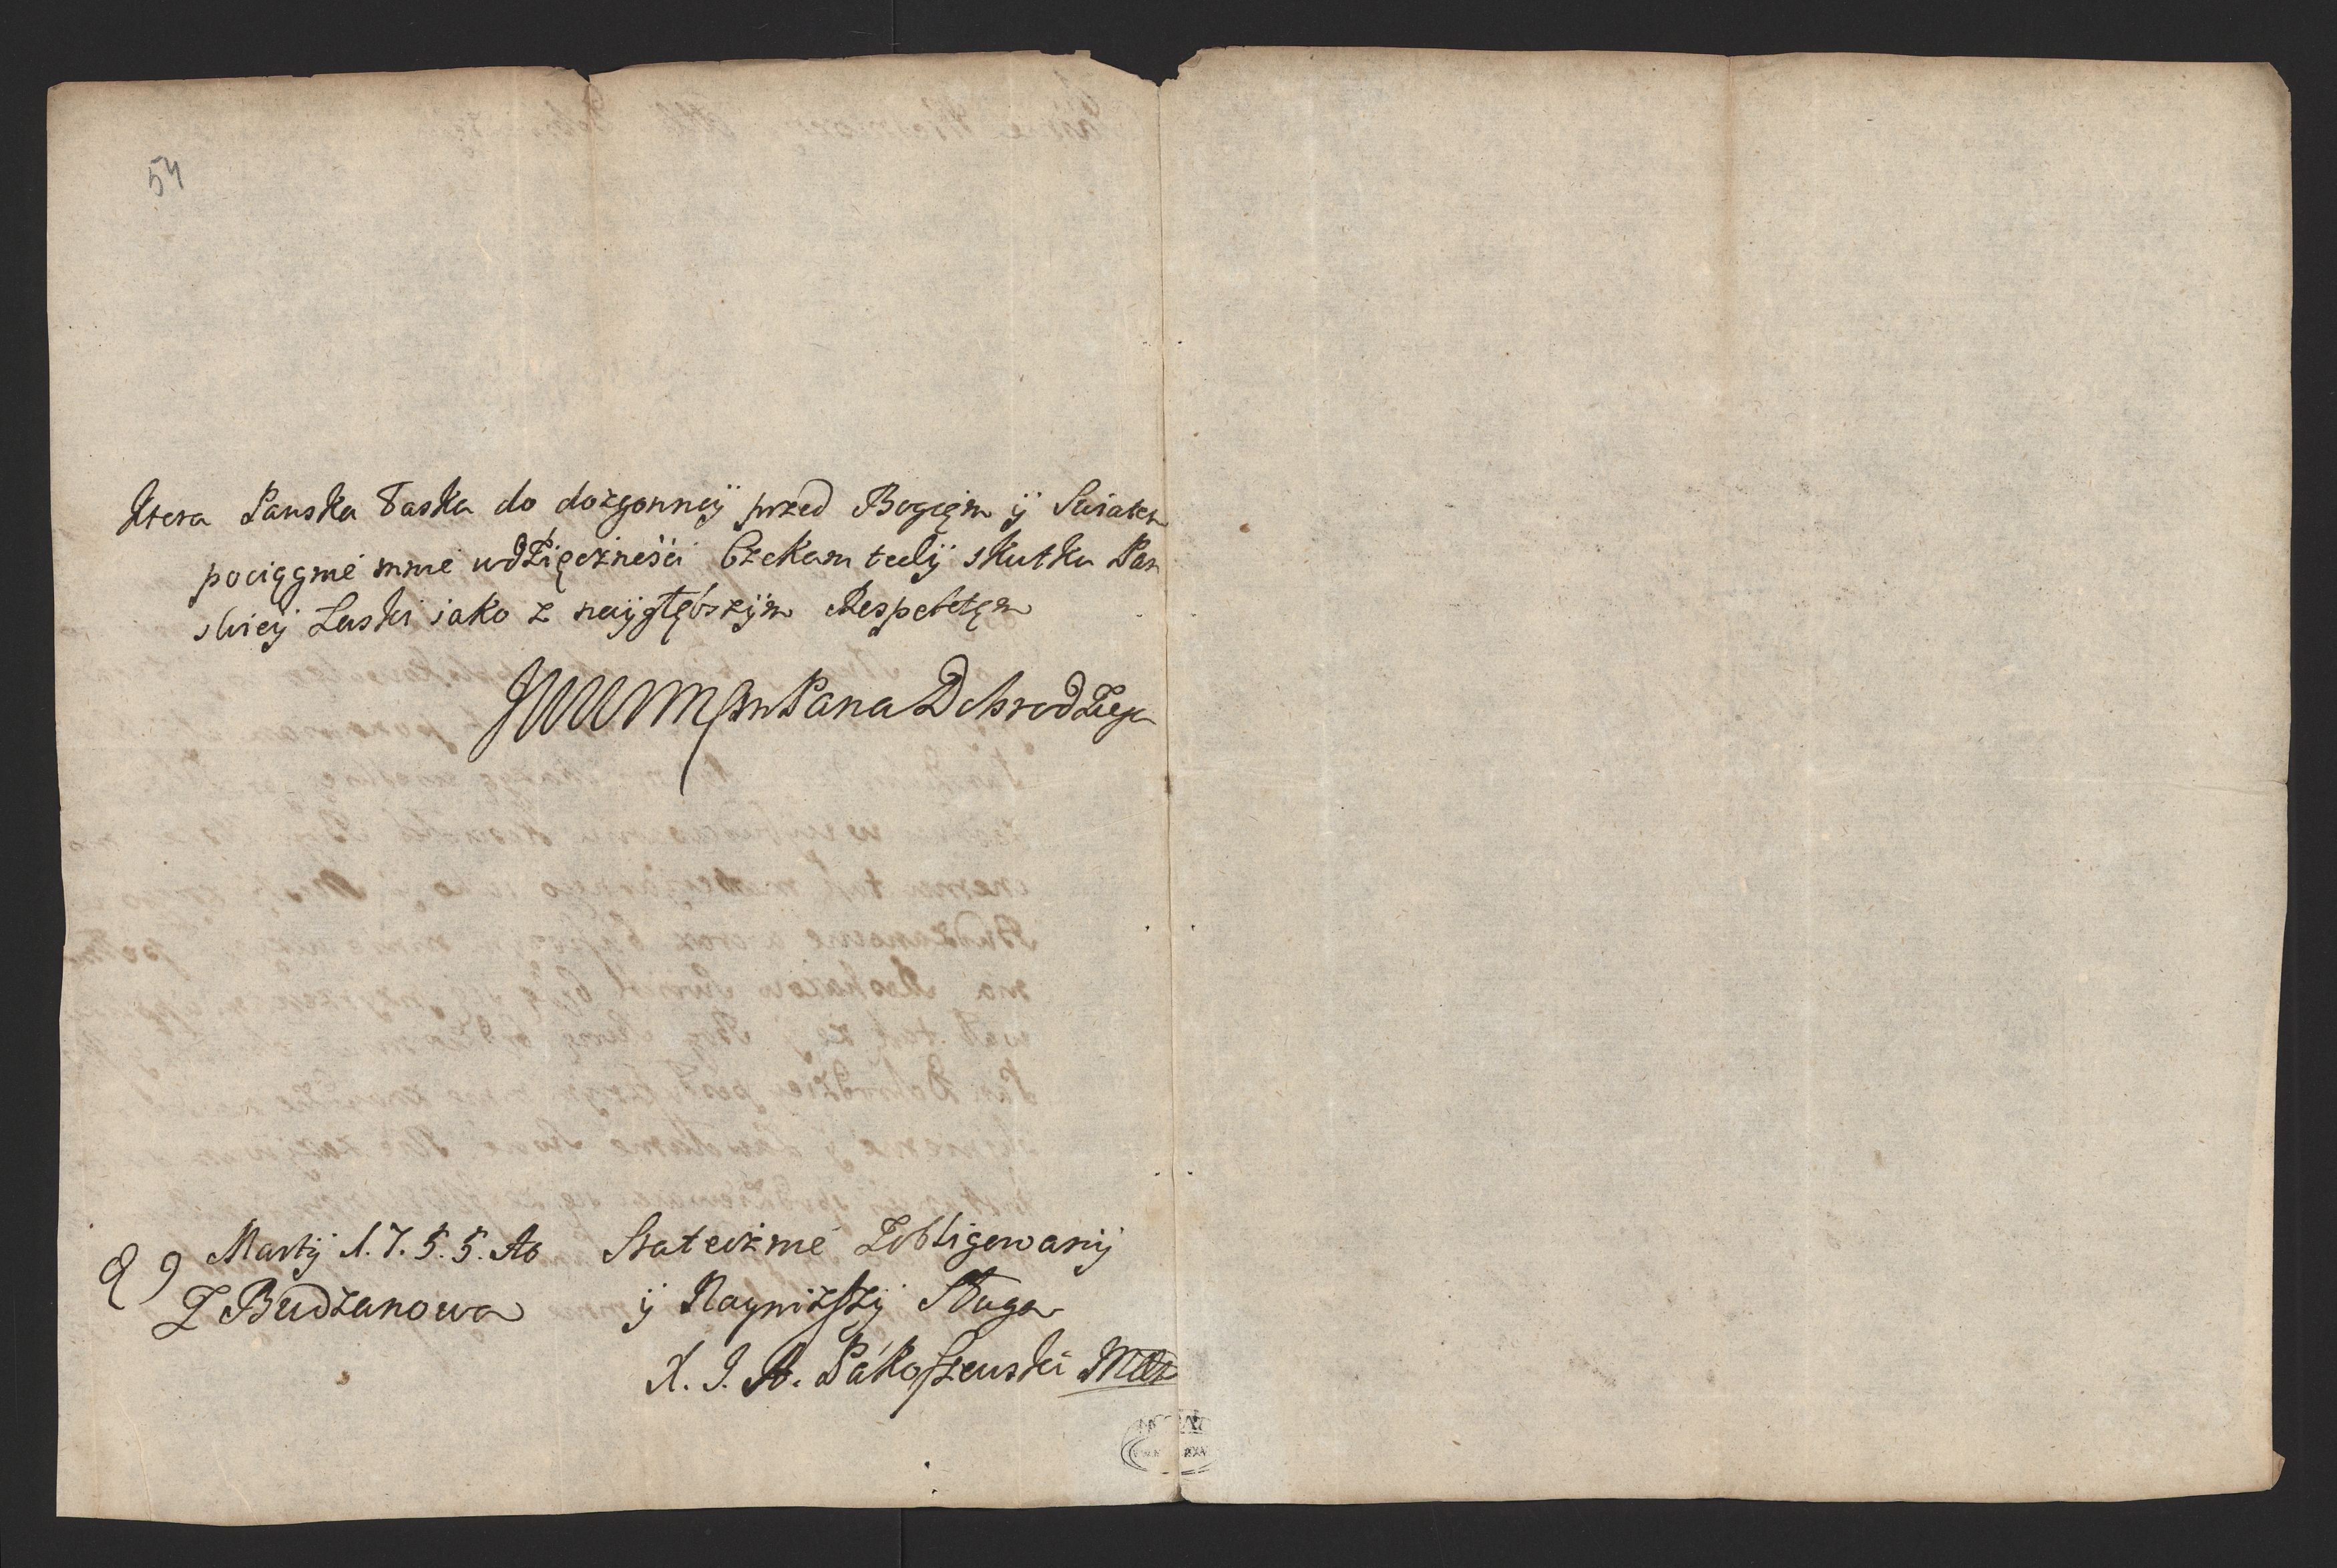 54
Ktora Panska Łaska do dozgonnÿ przed Bogięm ÿ Swiatem
pociągnie mnie wdzięcżnośći Czekam tedÿ skutku Pan
skieÿ Łaski iako z naÿgłębszÿm Respektęm
JWWMM Pana Dobrodzieja
9 Martÿ 1.7.5.5. Ao
Z Budzanowa
Stateczńie Zobligowanÿ
ÿ Nayniższÿ Sługa
X. J. A. Pákoszewski